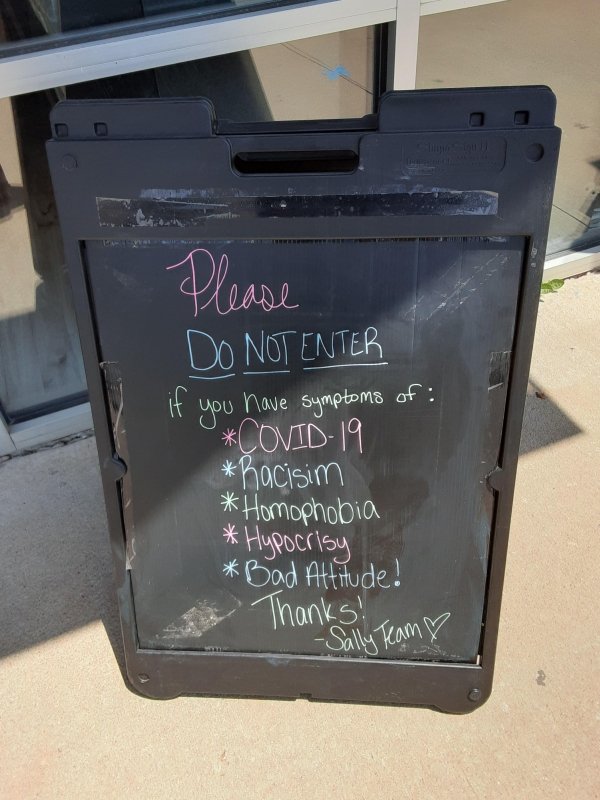 Please
DO NOT ENTER
if you have symptoms of :
*COVID-19
*Racisim
*Homophobia
*Hypocrisy
*Bad Attitude!
Thanks!
-Sally Team ♡